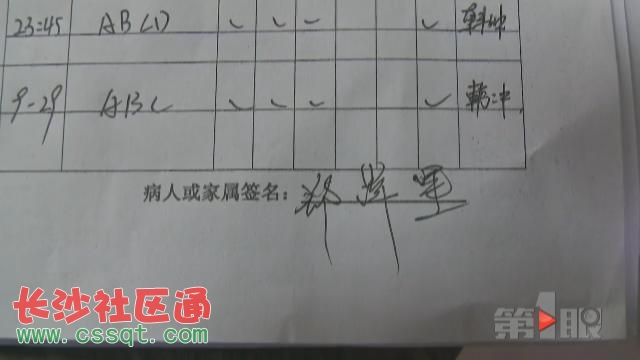 23:45 ABCD ✓ ✓ ✓ ✓
9-29 ABC ✓ ✓ ✓ ✓
病人或家属签名:
长沙社区通
www.cssqt.com
第1眼